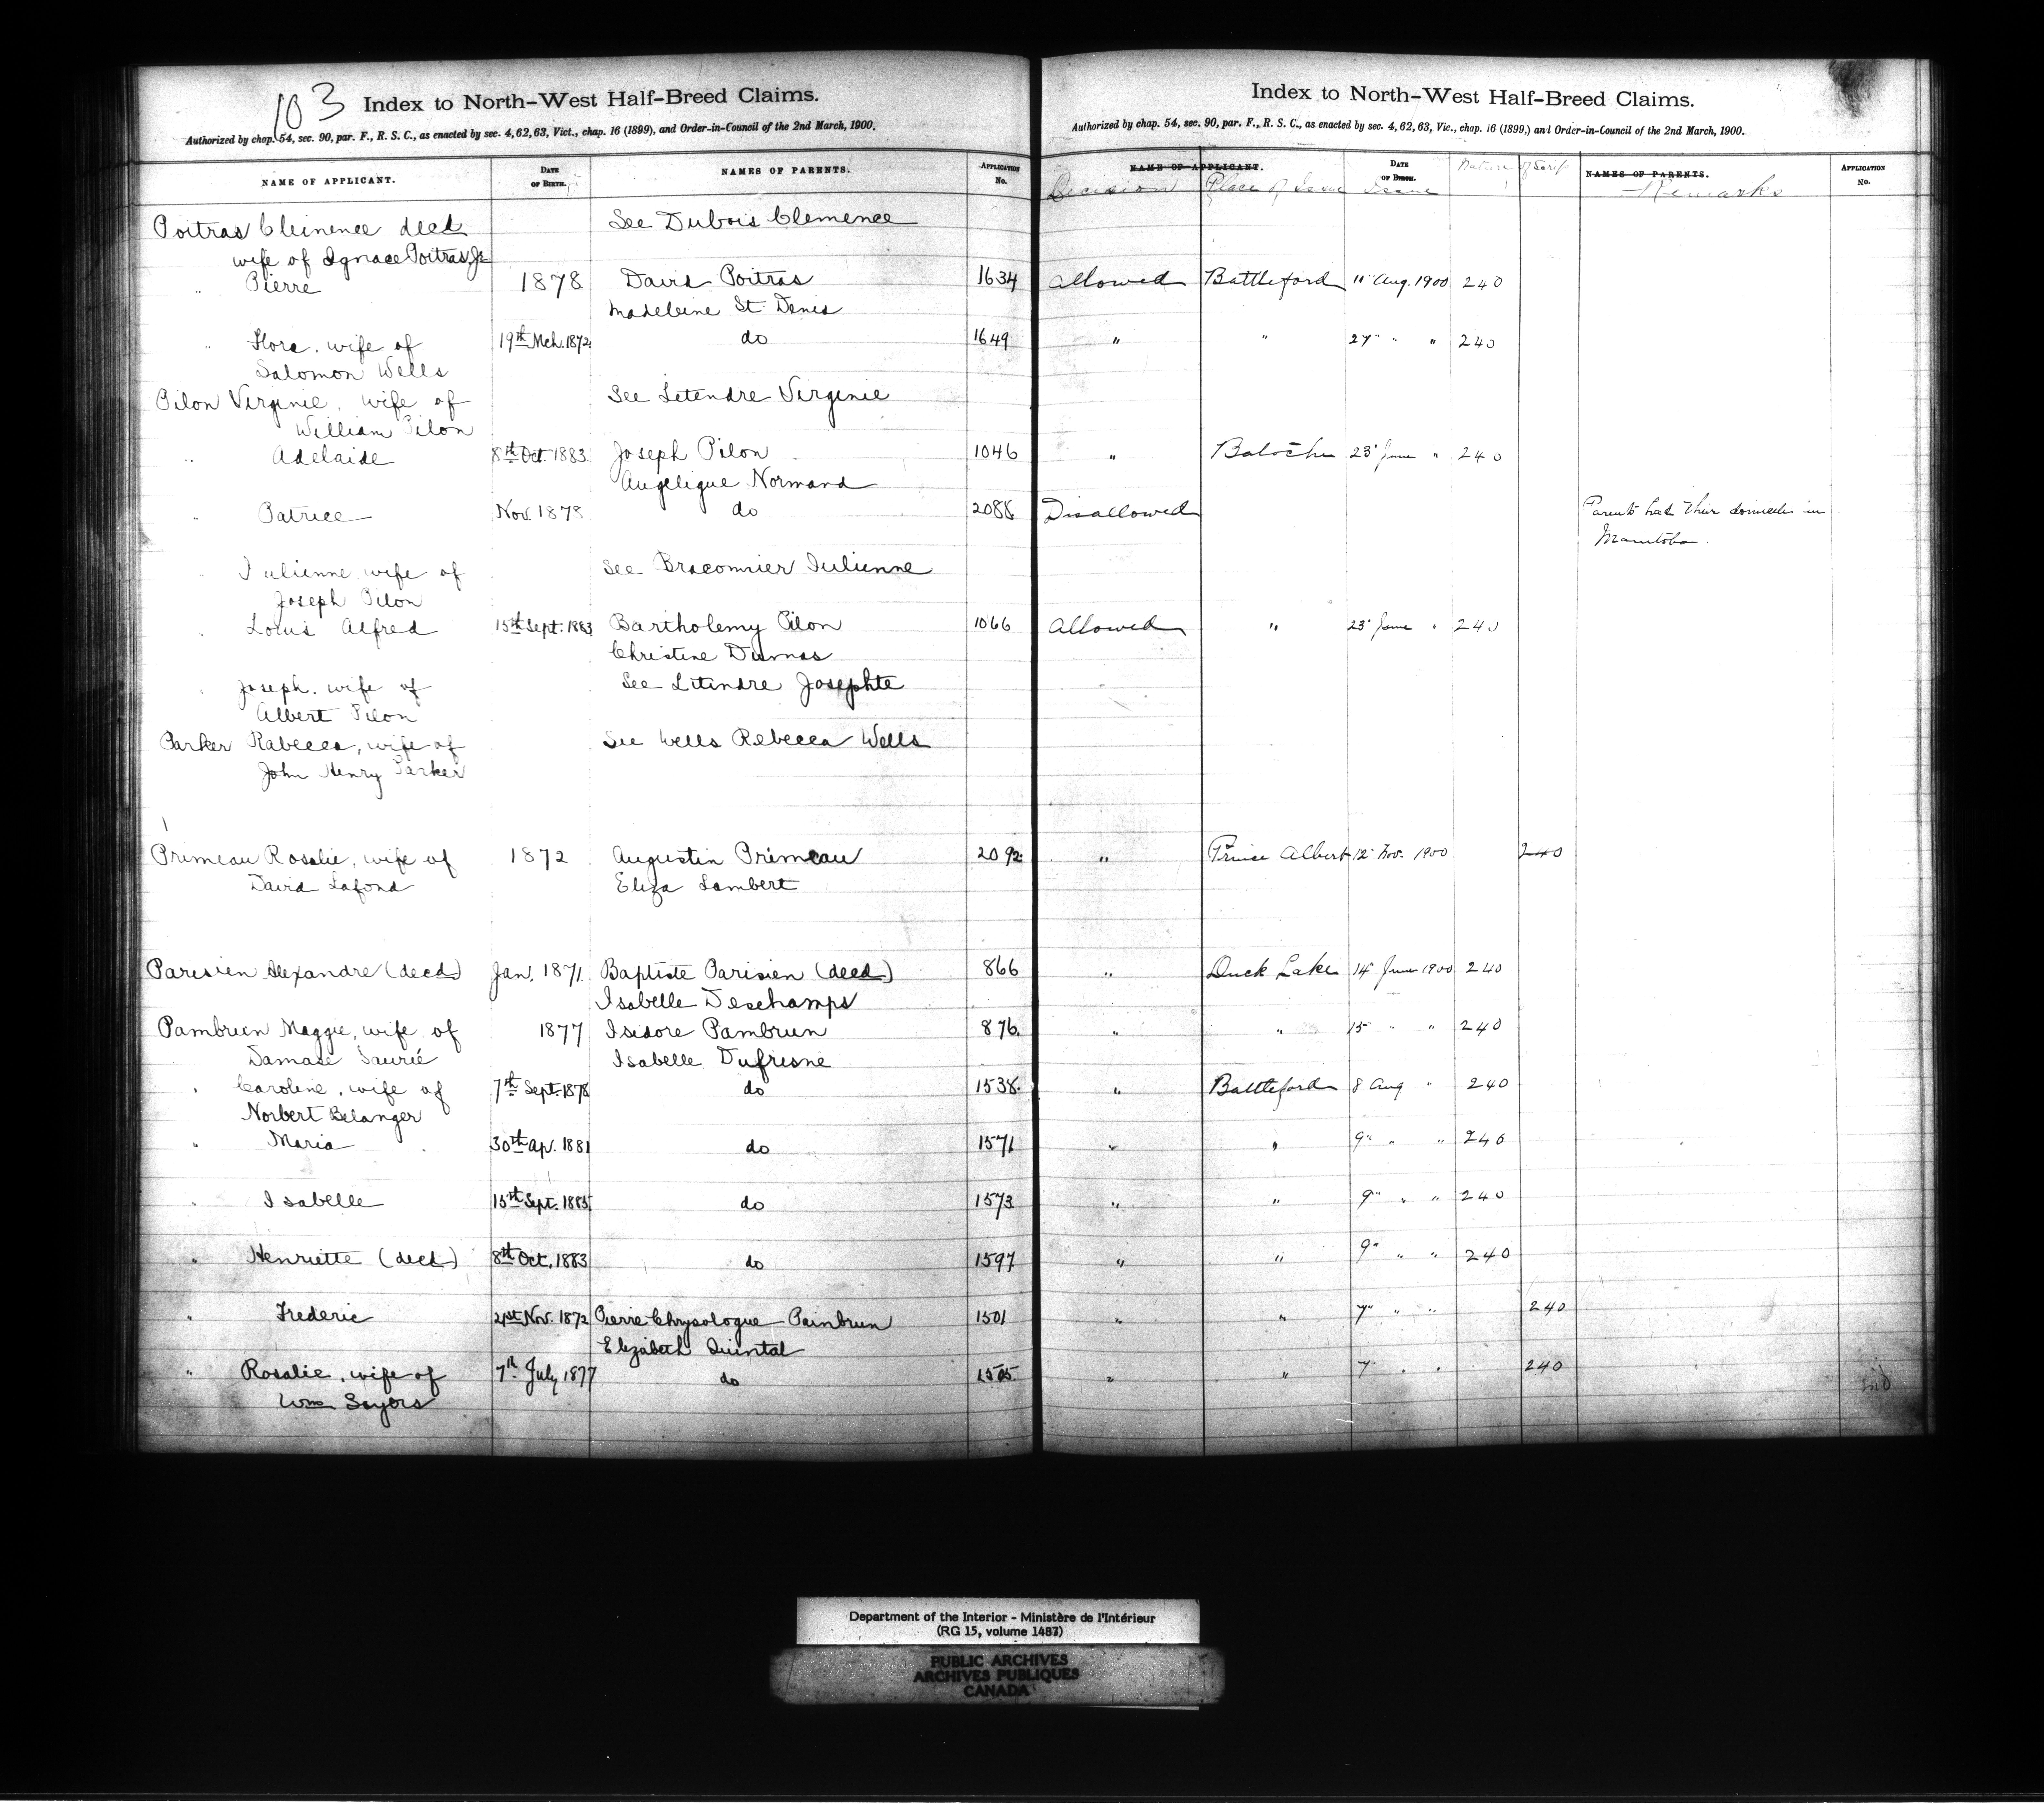 103
Index to North-West Half-Breed Claims.
Authorized by chap. 54, sec. 90, par. F., R. S. C., as enacted by sec. 4, 62, 63, Vict., chap. 16 (1899), and Order-in-Council of the 2nd March, 1900.
NAME OF APPLICANT. DATE OF BIRTH. NAMES OF PARENTS. APPLICATION No.
Index to North-West Half-Breed Claims.
Authorized by chap. 54, sec. 90, par. F., R. S. C., as enacted by sec. 4, 62, 63, Vic., chap. 16 (1899,) and Order-in-Council of the 2nd March, 1900.
NAME OF APPLICANT. DATE OF BIRTH. Nature of Scrip NAMES OF PARENTS. APPLICATION No.
Decision Place of Issue Issue Remarks
Poitras Clemence decd See Dubois Clemence
wife of Ignace Poitras Jr
" Pierre 1878 David Poitras 1634 allowed Battleford 11" Aug. 1900 240
Madeleine St. Denis
" Flora. wife of 19th Mch. 1872 do 1649 " " 27" " " 240
Salomon Wells
Pilon Virginie. wife of See Letendre Virginie
William Pilon
" Adelaide 8th Oct. 1883 Joseph Pilon 1046 " Batoche 23" June " 240
Angelique Normand
" Patrice Nov. 1878 do 2088 Disallowed Parents had their domicile in
Manitoba.
" Julienne wife of See Braconnier Julienne
Joseph Pilon
" Louis Alfred 15th Sept. 1883 Bartholemy Pilon 1066 Allowed " 23" June " 240
Christine Dumas
" Joseph. wife of See Letendre Josephte
Albert Pilon
Parker Rabecca, wife of See Wells Rebecca Wells
John Henry Parker
Primeau Rosalie, wife of 1872 Augustin Primeau 2092 " Prince Albert 12" Nov. 1900 240
David Lafond Eliza Lambert
Parisien Alexandre (decd) Jan. 1871 Baptiste Parisien (decd) 866 " Duck Lake 14" June 1900 240
Isabelle Deschamps
Pambrun Maggie, wife of 1877 Isidore Pambrun 876. " " 15" " " 240
Damase Laurié Isabelle Dufresne
" Caroline, wife of 7th Sept. 1878 do 1538. " Battleford 8 Aug " 240
Norbert Belanger
" Maria 30th Ap. 1881 do 1571 " " 9" " " 240
" Isabelle 15th Sept. 1885 do 1573 " " 9" " " 240
" Henriette (decd) 8th Oct. 1883 do 1597 " " 9" " " 240
" Frederic 21st Nov. 1872 Pierre Chrysologue Pambrun 1501 " " 7" " " 240
Elizabeth Quintal
" Rosalie, wife of 7th July 1877 do 1505 " " 7" " " 240
Wm Sayers
Department of the Interior - Ministère de l'Intérieur
(RG 15, volume 1487)
PUBLIC ARCHIVES
ARCHIVES PUBLIQUES
CANADA